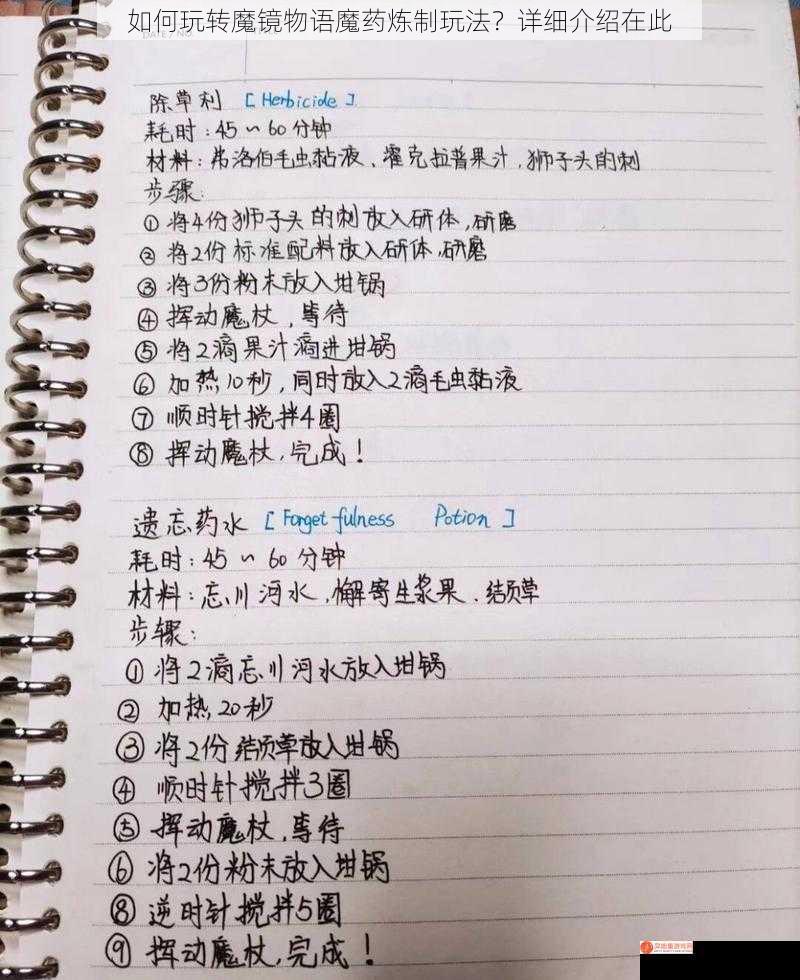 如何玩转魔镜物语魔药炼制玩法？详细介绍在此
除草剂 [Herbicide]
耗时：45～60分钟
材料：弗洛伯毛虫黏液、霍克拉普果汁，狮子头的刺
步骤：
① 将4份狮子头的刺放入研体，研磨
② 将2份标准配料放入研体，研磨
③ 将3份粉末放入坩锅
④ 挥动魔杖，等待
⑤ 将2滴果汁滴进坩锅
⑥ 加热10秒，同时放入2滴毛虫黏液
⑦ 顺时针搅拌4圈
⑧ 挥动魔杖，完成！
遗忘药水 [Forgetfulness Potion]
耗时：45～60分钟
材料：忘川河水，槲寄生浆果、缬草
步骤：
① 将2滴忘川河水放入坩锅
② 加热20秒
③ 将2份缬草放入坩锅
④ 顺时针搅拌3圈
⑤ 挥动魔杖，等待
⑥ 将2份粉末放入坩锅
⑧ 逆时针搅拌5圈
⑨ 挥动魔杖，完成！